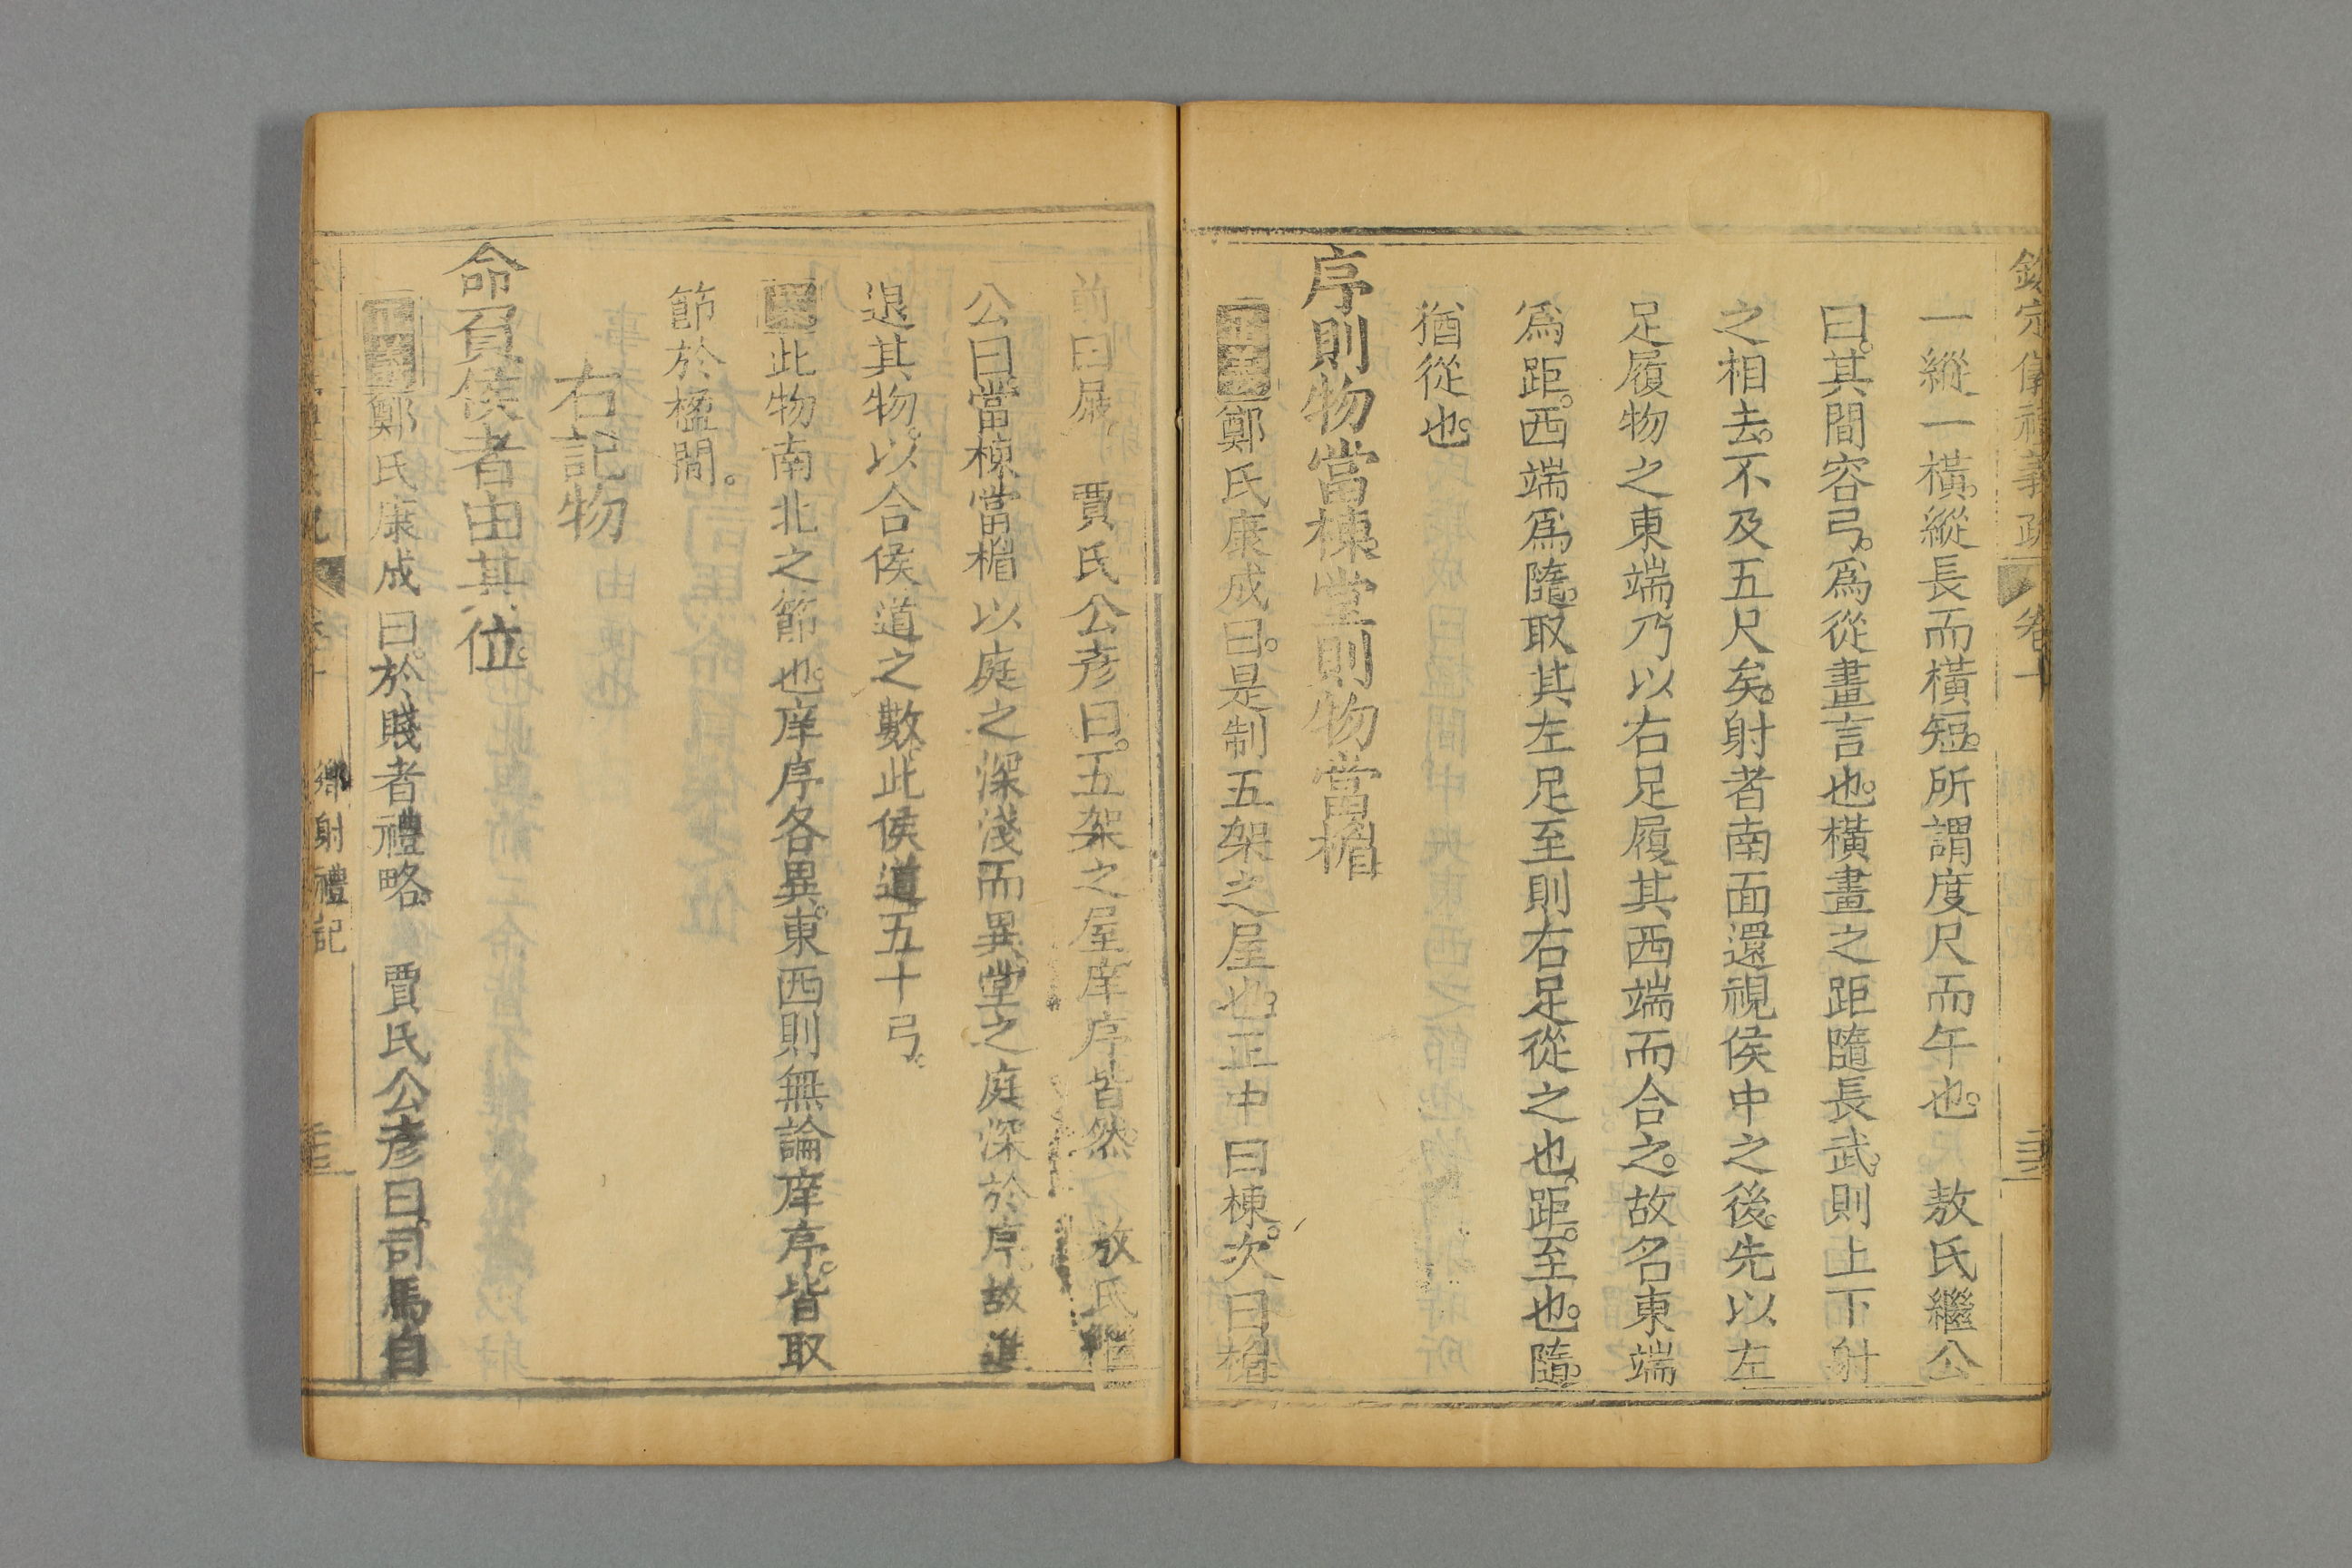 欽定儀禮義疏 卷十
一縱一橫。縱長而橫短。所謂度尺而午也。 敖氏繼公
曰。其間容弓。爲從畫言也。橫畫之距隨長武。則上下射
之相去。不及五尺矣。射者南面還視侯中之後。先以左
足履物之東端乃以右足履其西端而合之。故名東端
爲距。西端爲隨。取其左足至則右足從之也。距。至也。隨。
猶從也。
序則物當棟堂則物當楣
正義鄭氏康成曰。是制五架之屋也。正中曰棟。次曰楣
前曰庪。 賈氏公彥曰。五架之屋庠序皆然。 敖氏繼
公曰當棟當楣以庭之深淺而異堂之庭深於序故進
退其物。以合侯道之數此侯道五十弓。
案此物南北之節也。庠序各異。東西則無論庠序。皆取
節於楹間。
右記物
命負侯者由其位。
正義鄭氏康成曰。於賤者禮略。 賈氏公彥曰司馬自
鄉射禮記